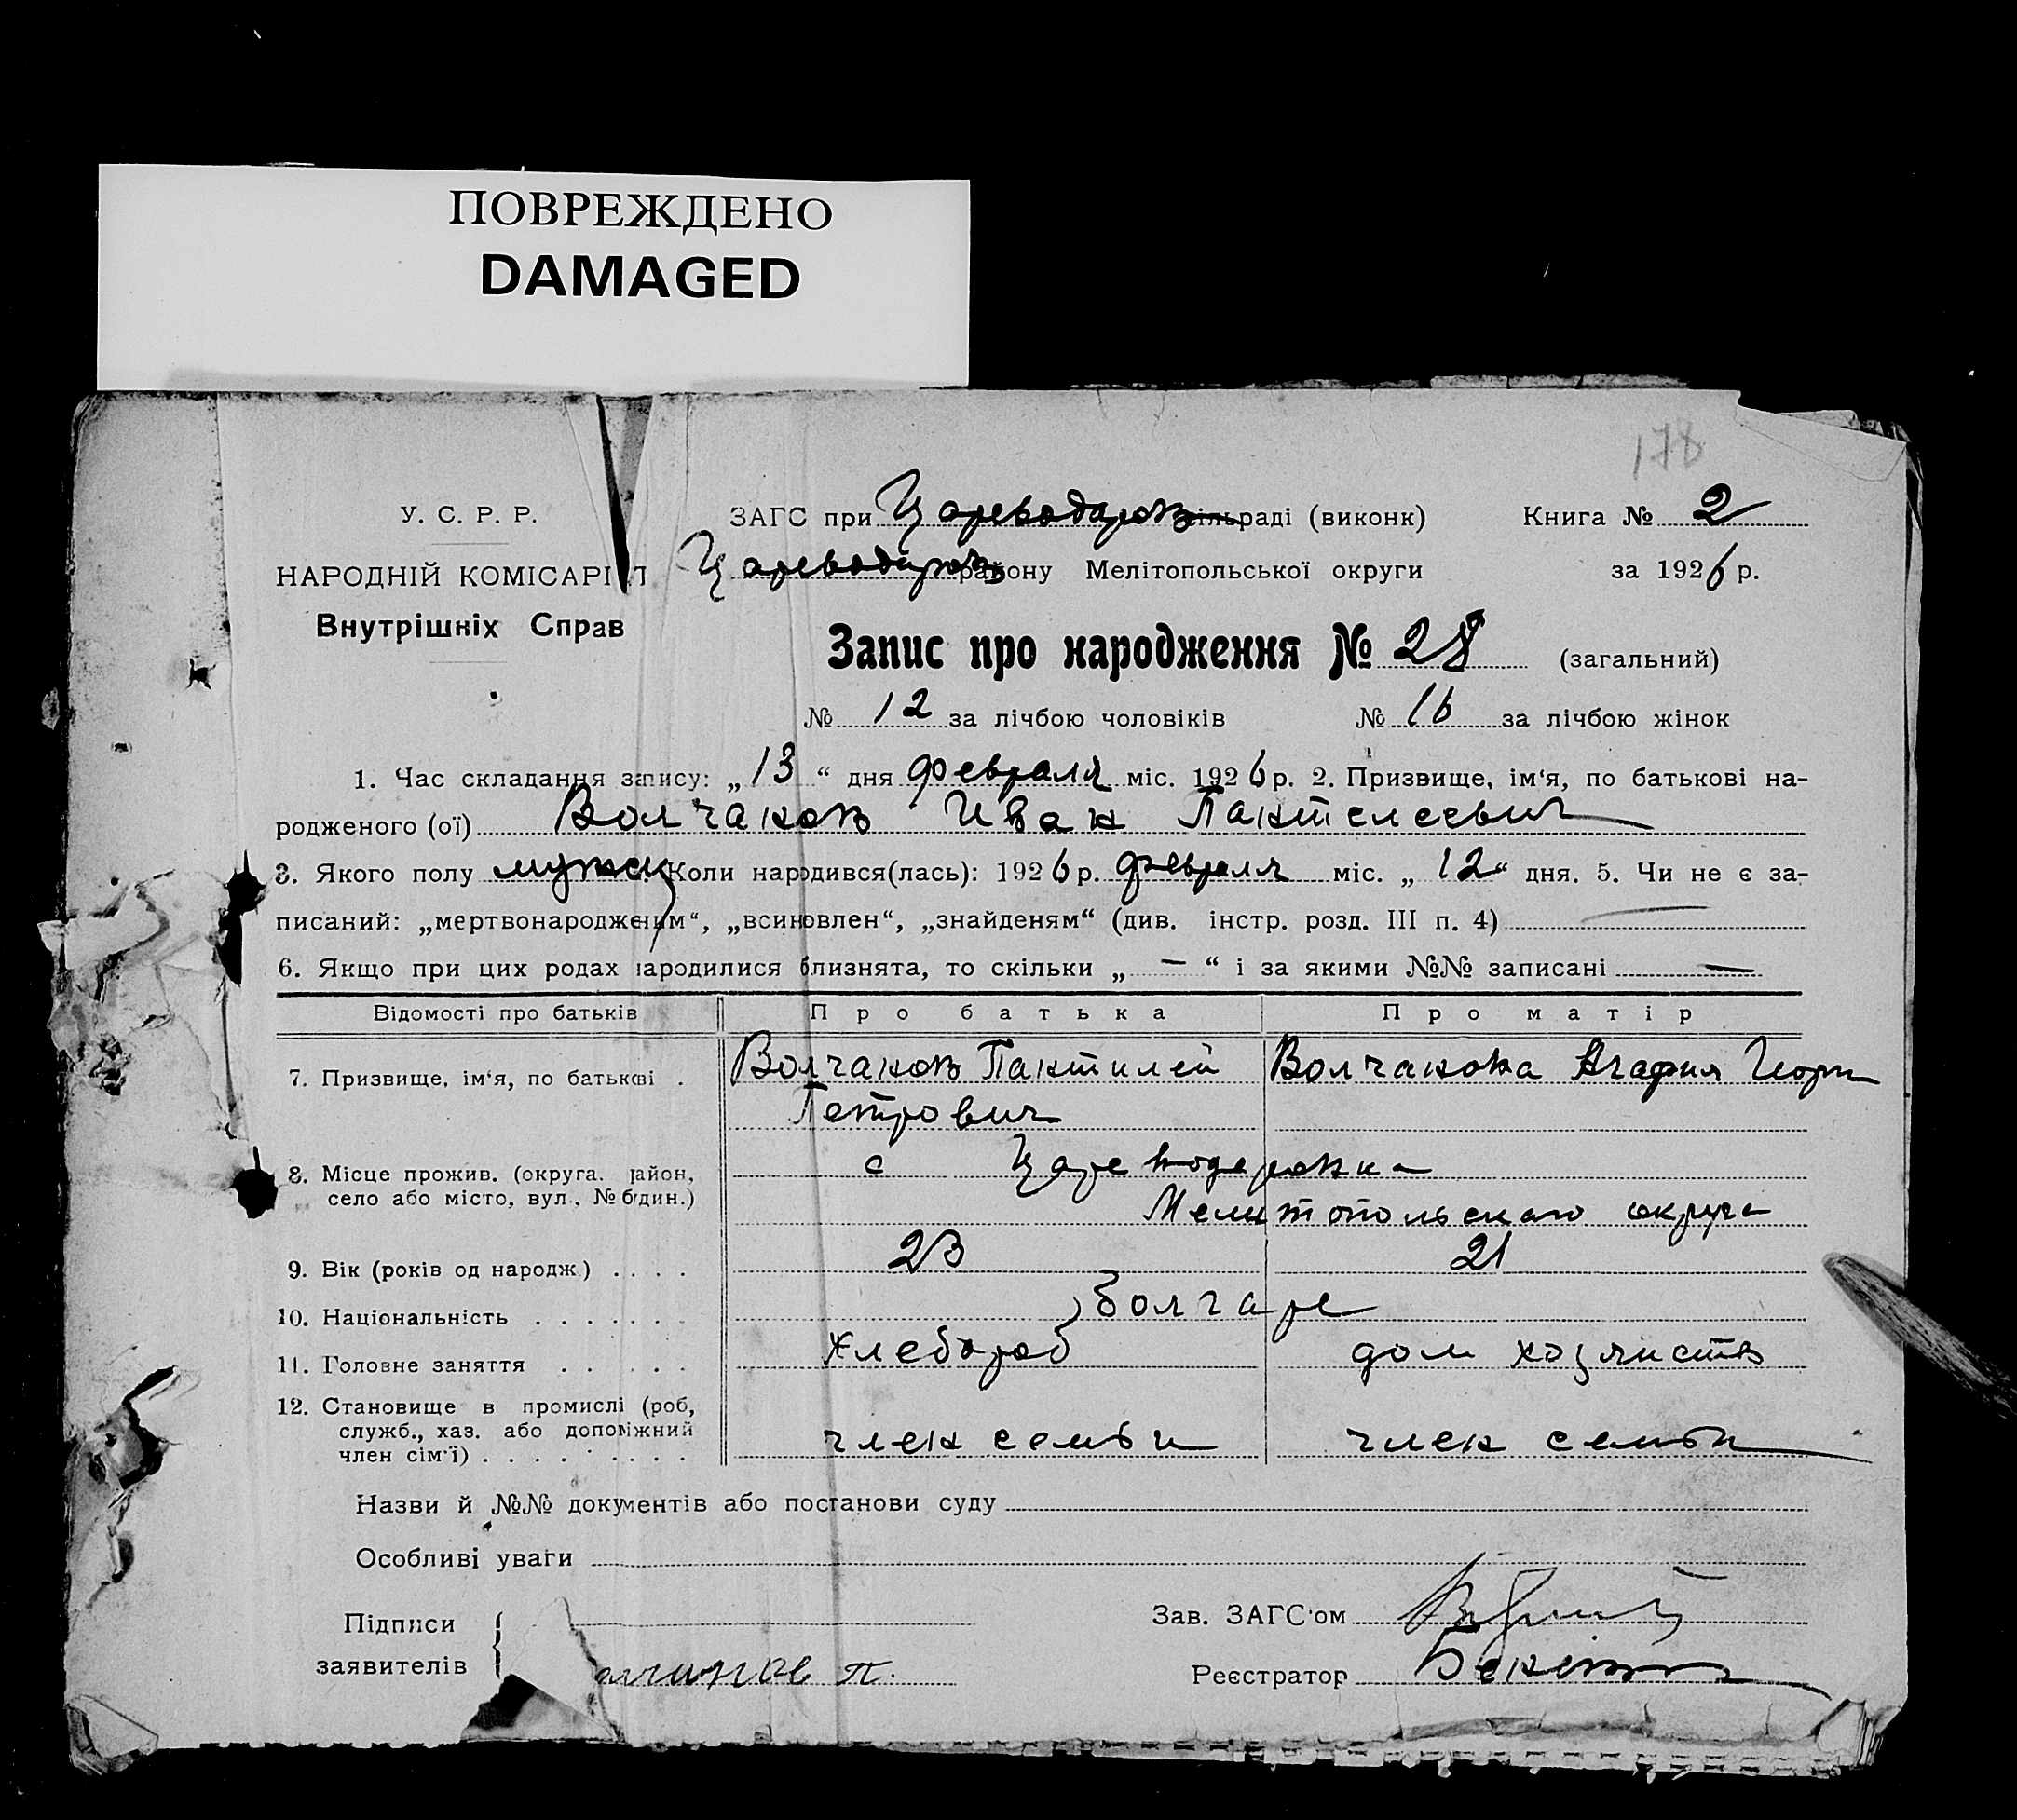 ПОВРЕЖДЕНО
DAMAGED
178
У. С. Р. Р.
ЗАГС при Цареводаров сільраді (виконк) Книга № 2
НАРОДНІЙ КОМІСАРІ Т Цареводаров району Мелітопольської округи за 1926 р.
Внутрішніх Справ
Запис про народження № 28 (загальний)
№ 12 за лічбою чоловіків № 16 за лічбою жінок
1. Час складання запису: „13“ дня февраля міс. 1926 р. 2. Призвище, ім‘я, по батькові на-
родженого (ої) Волчанов Иван Пантелеевич
3. Якого полу мужск Коли народився(лась): 1926 р. февраля міс. „12“ дня. 5. Чи не є за-
писаний: „мертвонародженим“, „всиновлен“, „знайденям“ (див. інстр. розд. III п. 4) —
6. Якщо при цих родах народилися близнята, то скільки „ — “ і за якими №№ записані —
Відомості про батьків Про батька Про матір
7. Призвище, ім‘я, по батькові . Волчанов Пантилей Волчанова Агафия Георг
Петрович
8. Місце прожив. (округа. район, с Цареводаровка
село або місто, вул., № будин.) Мелитопольскаго округа
9. Вік (років од народж.) . . . . 23 21
10. Національність . . . . . . . болгаре
11. Головне заняття . . . . . хлебороб дом хозяиств
12. Становище в промислі (роб,
служб., хаз. або допоміжний
член сім‘ї) . . . . . . . . член семьи член семьи
Назви й №№ документів або постанови суду
Особливі уваги
Підписи Зав. ЗАГС‘ом
заявителів лчинов П. Реєстратор